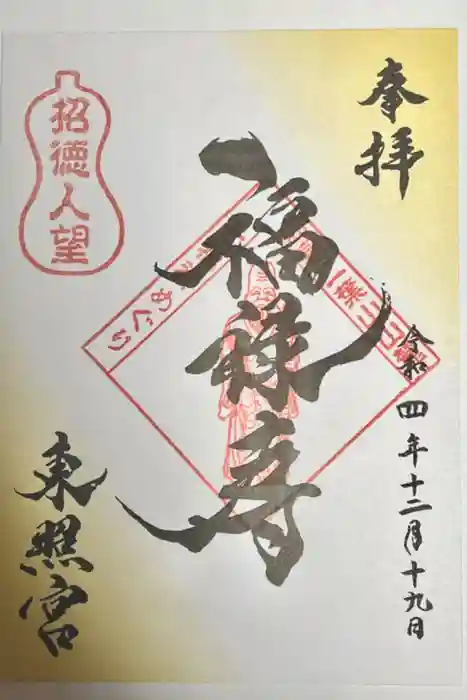 奉拝
招徳人望
福禄寿
めぐり
令和四年十二月十九日
東照宮